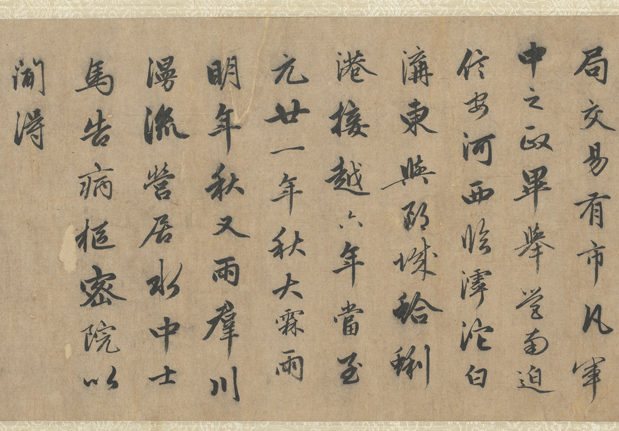 局交易有市凡軍
中之政畢舉營南迫
信安河西臨滹沱白
溝東與郎城蛤蜊
港接越六年當至
元廿一年秋大霖雨
明年秋又雨羣川
漫流營居水中士
馬告病樞密院以
聞得